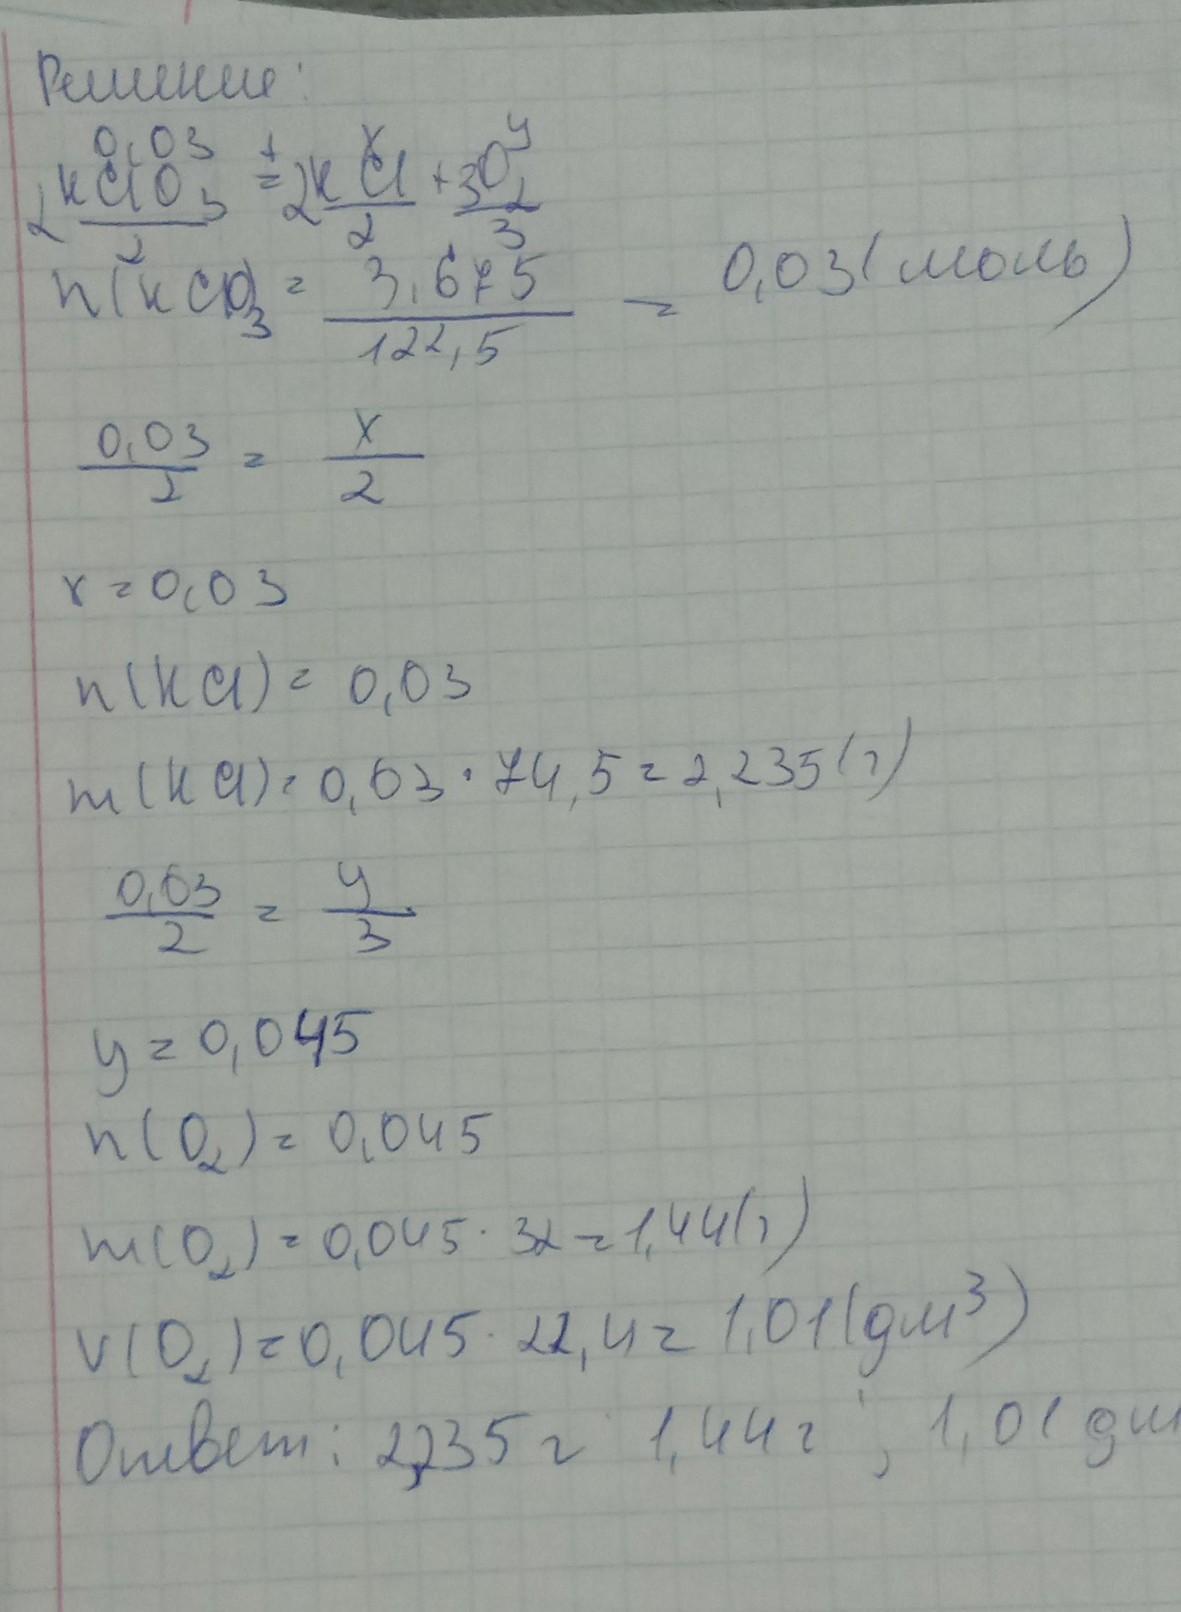 Решение:
0,03 t x y
2KClO3 = 2KCl + 3O2
2 2 3
n(KClO3 = 3,675 / 122,5 = 0,03(моль)
0,03 / 2 = x / 2
x = 0,03
n(KCl) = 0,03
m(KCl) = 0,03 · 74,5 = 2,235(г)
0,03 / 2 = y / 3
y = 0,045
n(O2) = 0,045
m(O2) = 0,045 · 32 = 1,44(г)
V(O2) = 0,045 · 22,4 = 1,01(дм³)
Ответ: 2,235г 1,44г ; 1,01 дм